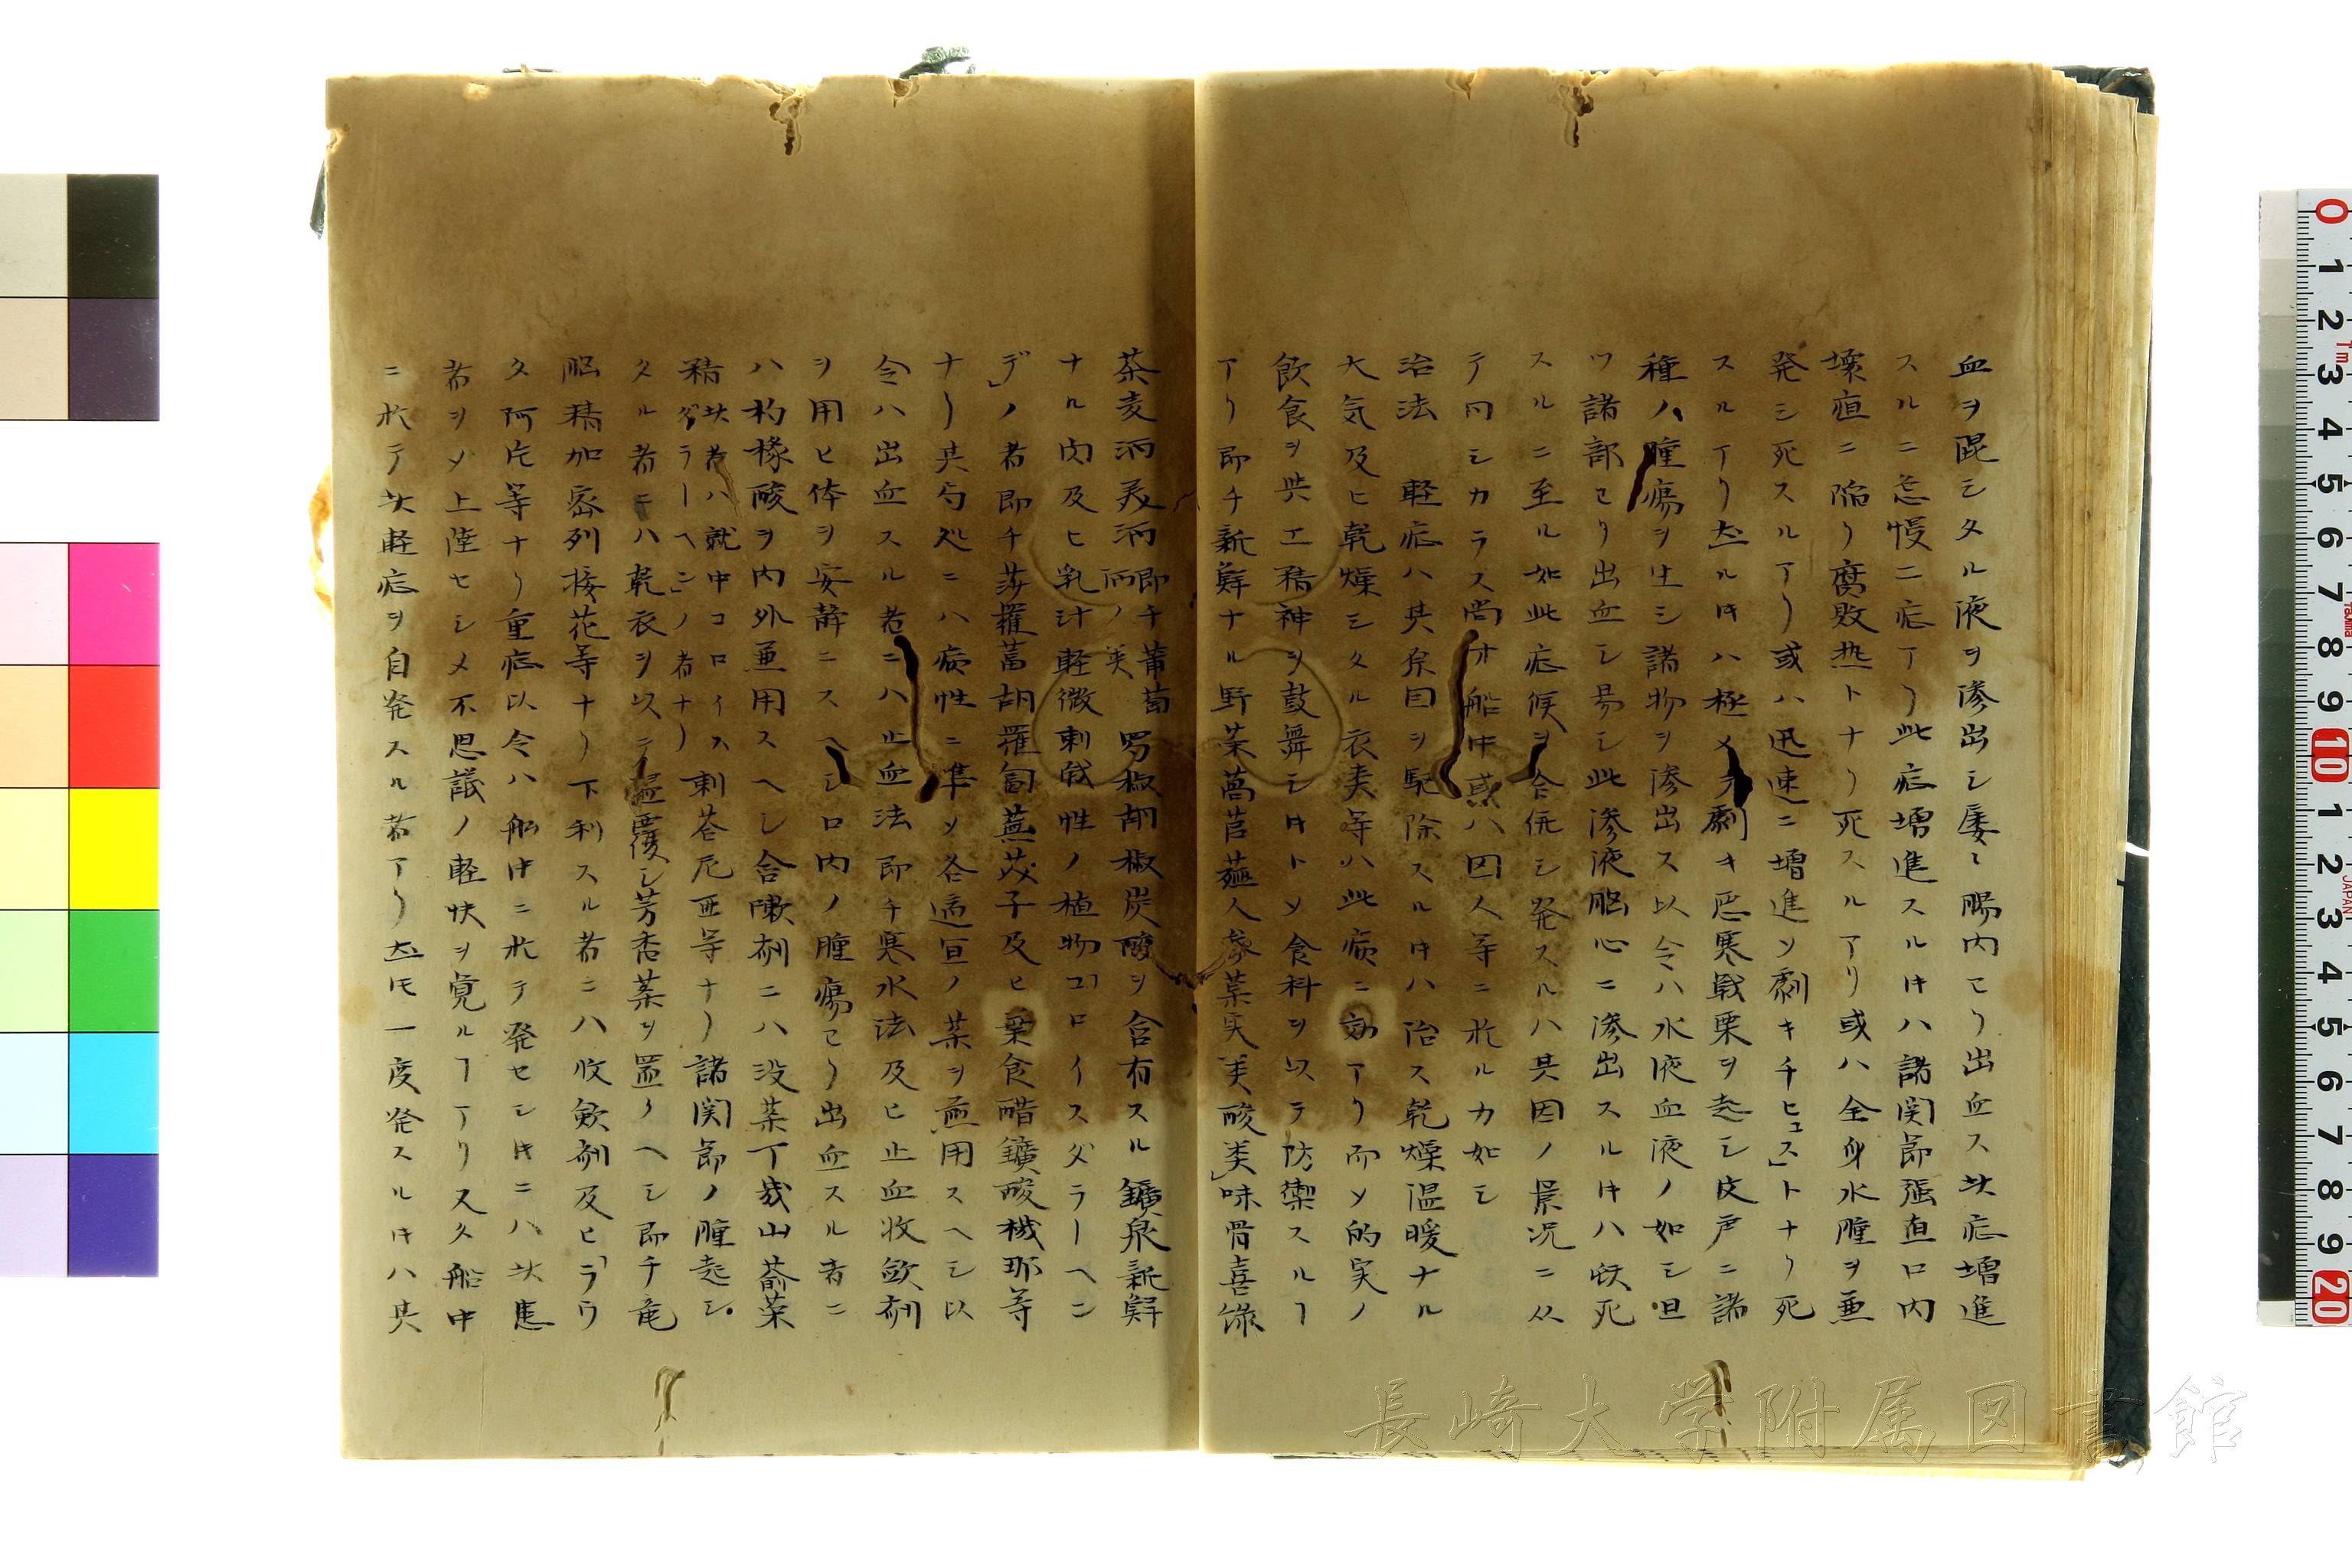 血ヲ混シタル液ヲ滲出シ屡〻腸内ヨリ出血ス此症増進
スルニ怠慢ニ症アリ此症増進スル寸ハ諸関節強直口内
壊疽ニ陥リ腐敗熱トナリ死スルアリ或ハ全身水腫ヲ兼
発シ死スルアリ或ハ迅速ニ増進ソ劇キチヒュス」トナリ死
スルアリ 寸ハ極メテ劇キ悪寒戦栗ヲ起シ皮戸ニ諸
種ノ腫瘍ヲ生シ諸物ヲ滲出ス以令ハ水液血液ノ如シ但
ツ諸部ヨリ出血シ易シ此滲液脳心ニ滲出スル寸ハ 死
スルニ至ル如此症候ヲ合併シ発スルハ其因ノ景况ニ从
テ同シカラス尚オ船中或ハ囚人等ニ於ルカ如シ
治法 軽症ハ其原因ヲ駆除スル寸ハ治ス乾燥温暖ナル
大気及ヒ乾燥シタル衣类等ハ此病ニ効アリ而ソ的実ノ
飲食ヲ与エ精神ヲ鼓舞シ 食料ヲ以テ防禦スルヿ
アリ即チ新鮮ナル野菜萵苣 人參葉実类酸类」味骨喜
茶麦酒美酒 即チ葡萄酒ノ类 胡椒炭酸ヲ含有スル鑛泉新鮮
ナル肉及ヒ乳汁軽微刺戟性ノ植物コロイスダラーヘン
デ」ノ者即チ莎羅蔔胡羅蔔蕪茂子及ヒ葉食醋鑛酸機那等
ナリ其局処ニハ病性ニ準ソ各適宜ノ薬ヲ兼用スヘシ以
令ハ出血スル者ニハ止血法即チ寒水法及ヒ止血收歛剤
ヲ用ヒ体ヲ安静ニスヘシ口内ノ腫瘍ヨリ出血スル者ニ
ハ杓橼酸ヲ内外兼用スヘシ含嗽剤ニハ没薬丁幾山 菜
精 此者ハ就中コロイスダラーヘン」ノ者ナリ 刺荅尼亜等ナリ諸関節ノ腫起シ
タル者ニハ乾衣ヲ以テ温覆シ芳香薬ヲ置クヘシ即チ竜
脳精加密列接花等ナリ下利スル者ニハ收歛剤及ヒ「ラウ
タ阿片等ナリ重症以令ハ船中ニ於テ発セシ寸ニハ此患
者ヲソ上陸セシメ不思議ノ軽快ヲ覚ルヿアリ又久船中
ニ於テ此軽症ヲ自発スル者アリ 一度発スル寸ハ其
長崎大学附属図書館